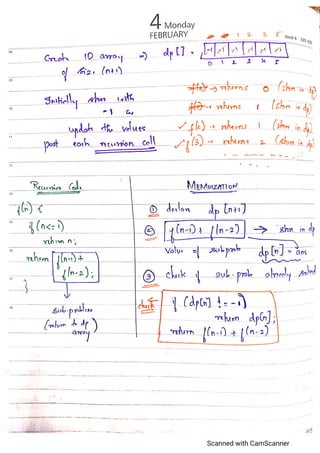 4 Monday
FEBRUARY
1 2 3 5
Create 1D array => dp[] =
-1 -1 -1 -1 -1 -1
of size (n+1)
0 1 2 3 4 5
f(0) → returns 0 (store in dp)
Initially store with
-1 &
f(1) → returns 1 (store in dp)
update the values
✓ f(2) → returns 1 (store in dp)
post each recursion call
✓ f(3) → returns 2 (store in dp)
Recursion Code
MEMOIZATION
f(n) {
① declare dp[n+1]
if (n<=1)
② f(n-1) + f(n-2) → store in dp
return n;
Value of subprob
dp[n] = ans
return f(n-1) +
f(n-2);
③ Check if sub-prob already solved
}
check
if (dp[n] != -1)
return dp[n];
sub-problem
(return to dp array)
return f(n-1) + f(n-2)
Scanned with CamScanner